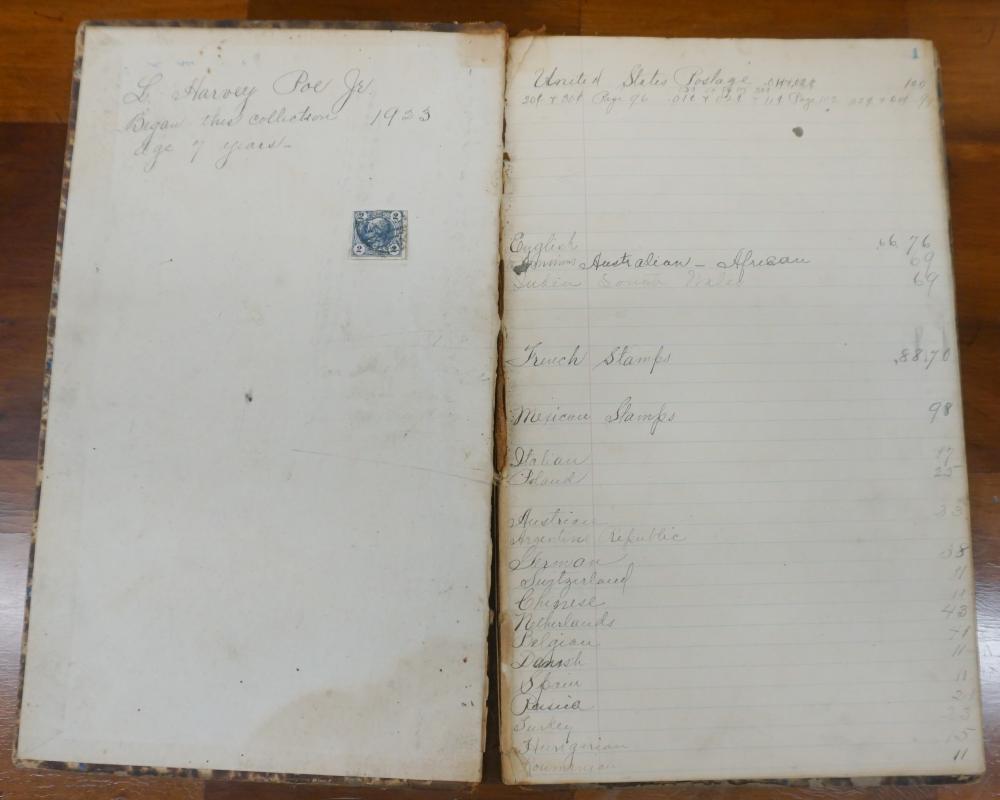 L. Harvey Poe Jr.
Began this collection 1923
age 7 years-
2 2
2 2
1
United States Postage 100
20¢ + 30¢ Page 96
English 66, 76
Australian - African 69
South Wales 69
French Stamps 88,70
Mexican Stamps 98
Italian 17
Poland 25
Austrian 33
Argentine Republic
German 38
Switzerland 11
Chinese 11
Netherlands 43
Belgian 71
Danish 11
Spain 11
Russia
Turkey
Hungarian 15
Roumanian 11